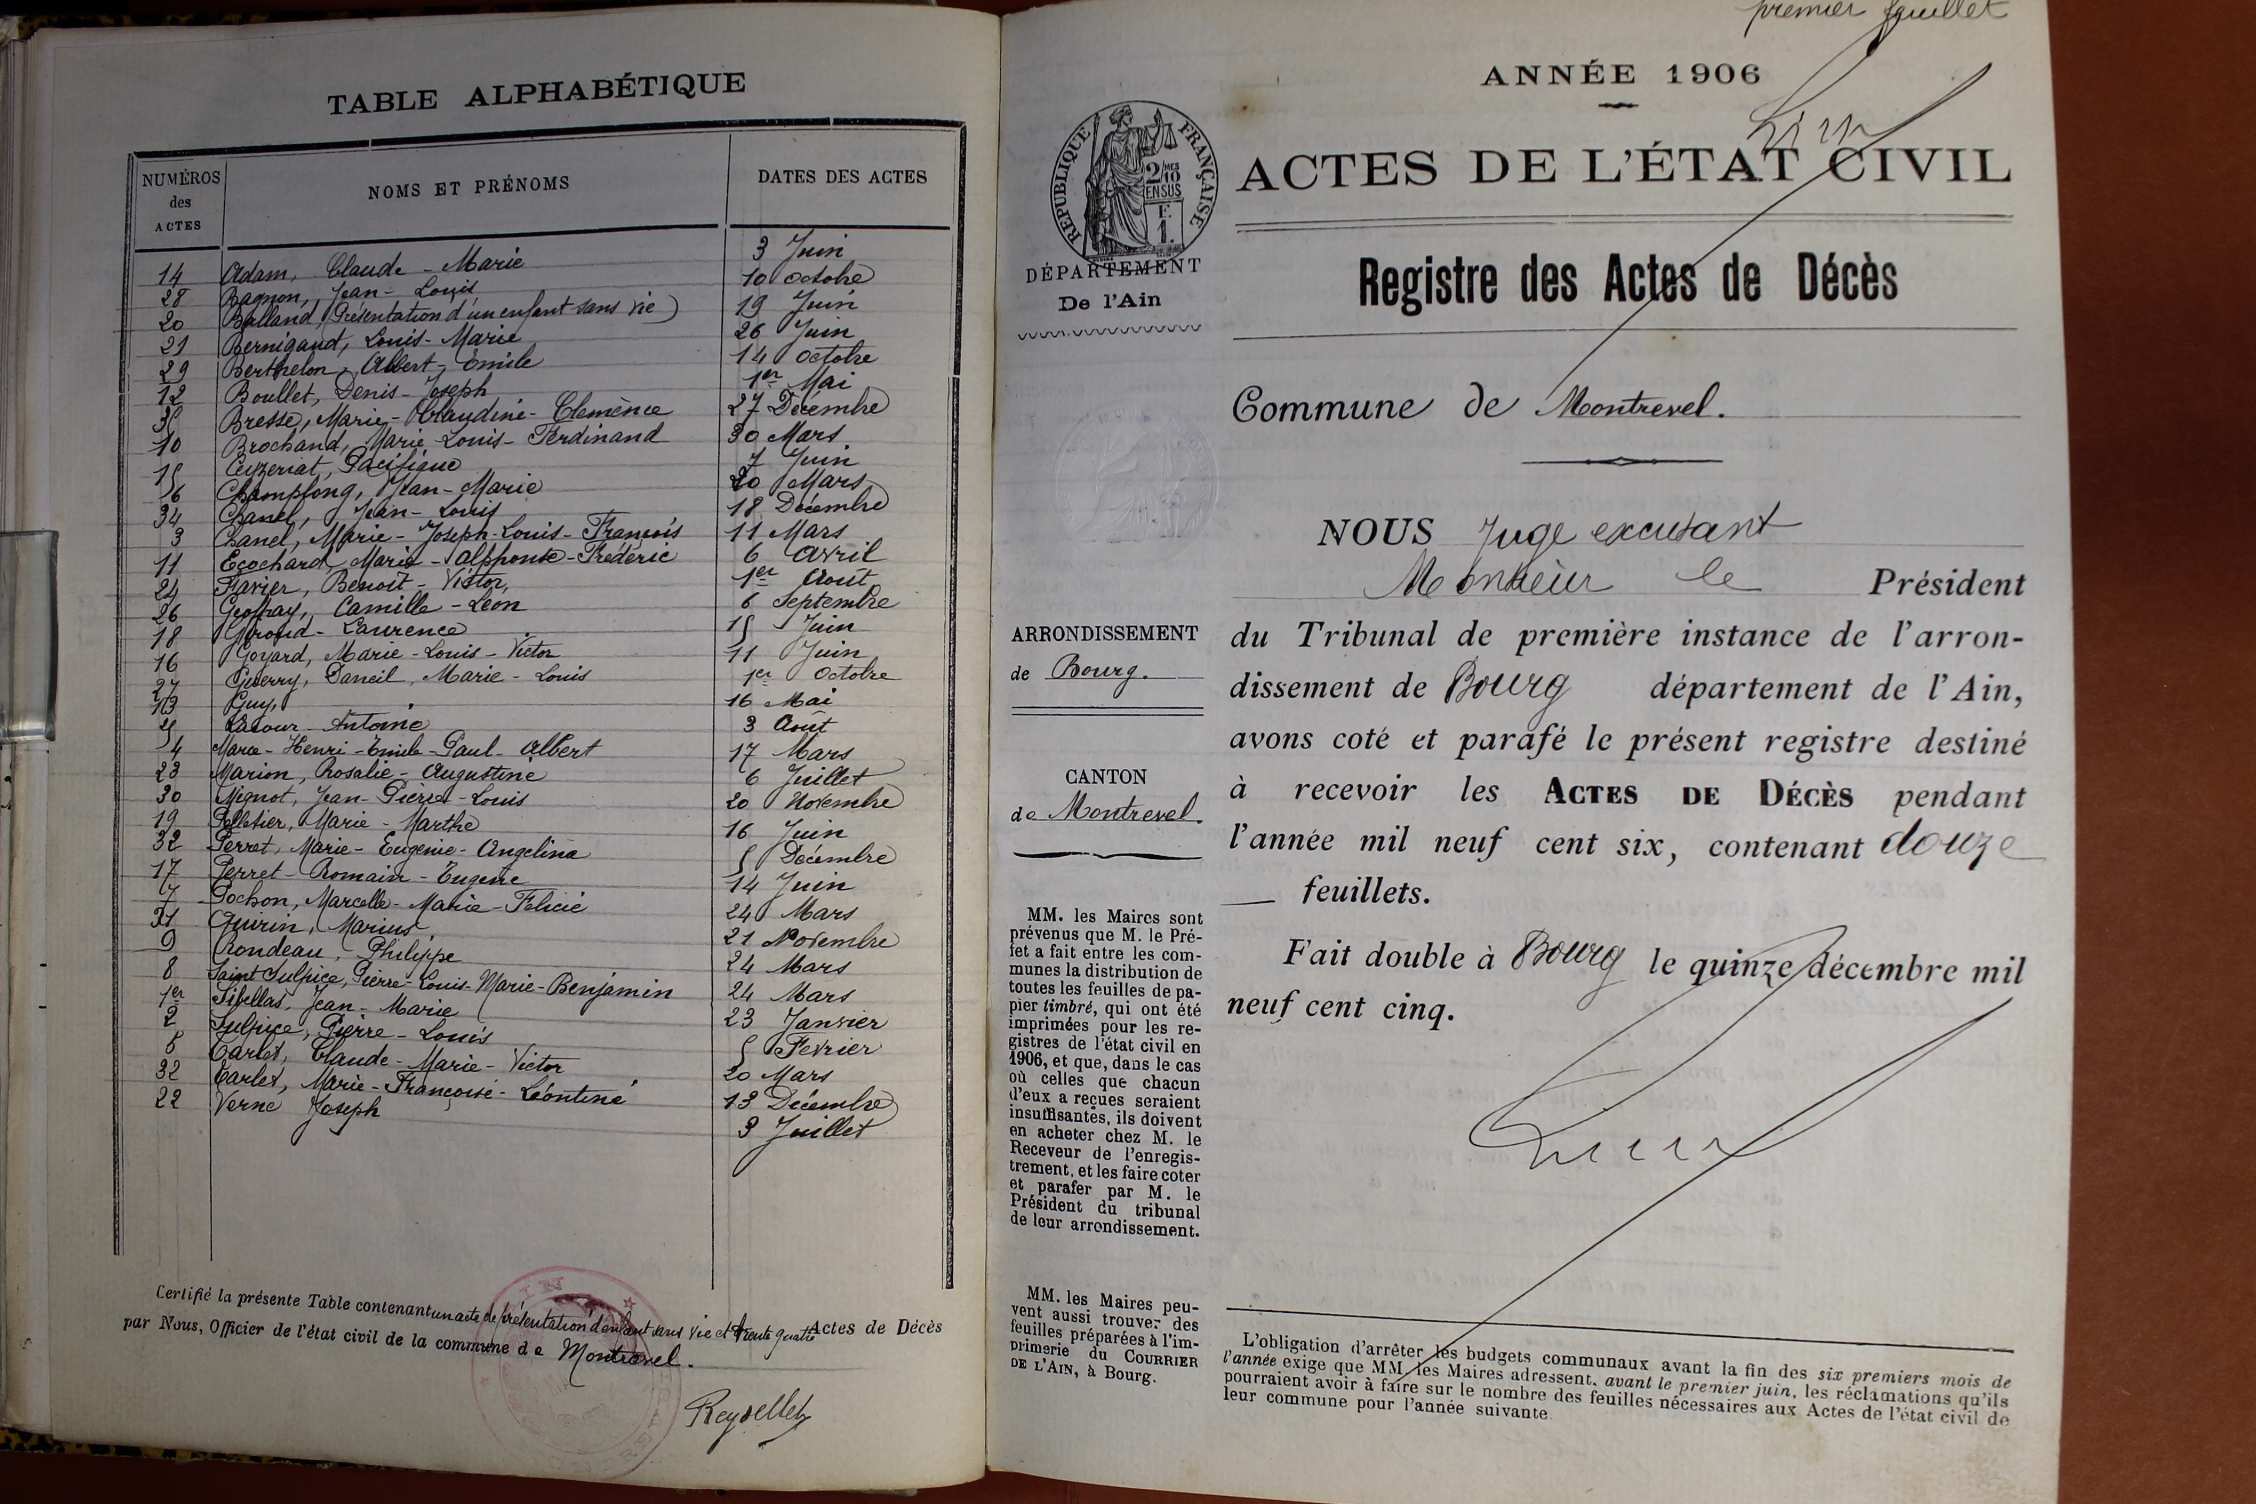 TABLE ALPHABÉTIQUE
NUMÉROS des ACTES
NOMS ET PRÉNOMS
DATES DES ACTES
14 Adam, Claude - Marie 3 Juin
28 Bagnon, Jean - Louis 10 Octobre
20 Balland (Présentation d'un enfant sans vie) 19 Juin
21 Bernigaud, Louis - Marie 26 Juin
29 Berthelon, Albert - Emile 14 Octobre
12 Boullet, Denis - Joseph 1er Mai
Bresse, Marie - Claudine - Clemènce 27 Décembre
10 Brochand, Marie - Louis - Ferdinand 30 Mars
15 Ceyzeriat, Pacifique 7 Juin
6 Champlong, Jean - Marie 20 Mars
34 Chanel, Jean - Louis 18 Décembre
3 Chanel, Marie - Joseph - Louis - François 11 Mars
11 Ecochard, Marie - Alphonse - Frédéric 6 Avril
24 Favier, Benoît - Victor, 1er Août
26 Geoffray, Camille - Léon 6 Septembre
18 Giroud - Laurence 15 Juin
16 Goyard, Marie - Louis - Victor 11 Juin
27 Guerry, Daneil, Marie - Louis 1er Octobre
13 Guy, 16 Mai
25 Lacour - Antoine 3 Août
4 Marce - Henri - Emile - Paul - Albert 17 Mars
23 Marion, Rosalie - Augustine 6 Juillet
30 Mignot, Jean - Pierre - Louis 20 Novembre
19 Pelletier, Marie - Marthe 16 Juin
32 Perret, Marie - Eugenie - Angelina 5 Décembre
17 Perret - Romain - Eugene 14 Juin
7 Pochon, Marcelle - Marie - Felicie 24 Mars
31 Quirin, Marius 21 Novembre
9 Rondeau, Philippe 24 Mars
8 Saint Sulpice, Pierre - Louis - Marie - Benjamin 24 Mars
1er Sibellas, Jean - Marie 23 Janvier
2 Sulpice, Pierre - Louis 5 Février
5 Carlet, Claude - Marie - Victor 20 Mars
32 Carlet, Marie - Françoise - Léontine 13 Décembre
22 Verne Joseph 3 Juillet
Certifié la présente Table contenant un acte de présentation d'enfant sans vie et trente quatre Actes de Décès
par Nous, Officier de l'état civil de la commune de Montrevel.
Reydellet
premier feuillet
ANNÉE 1906
RÉPUBLIQUE FRANÇAISE
2/10 MES
EN SUS
F.
1.
ACTES DE L'ÉTAT CIVIL
DÉPARTEMENT
De l'Ain
Registre des Actes de Décès
Commune de Montrevel.
NOUS Juge excusant
Monsieur le Président
du Tribunal de première instance de l'arron-
dissement de Bourg département de l'Ain,
avons coté et parafé le présent registre destiné
à recevoir les ACTES DE DÉCÈS pendant
l'année mil neuf cent six, contenant douze
feuillets.
Fait double à Bourg le quinze décembre mil
neuf cent cinq.
ARRONDISSEMENT
de Bourg.
CANTON
de Montrevel.
MM. les Maires sont
prévenus que M. le Pré-
fet a fait entre les com-
munes la distribution de
toutes les feuilles de pa-
pier timbré, qui ont été
imprimées pour les re-
gistres de l'état civil en
1906, et que, dans le cas
où celles que chacun
d'eux a reçues seraient
insuffisantes, ils doivent
en acheter chez M. le
Receveur de l'enregis-
trement, et les faire coter
et parafer par M. le
Président du tribunal
de leur arrondissement.
MM. les Maires peu-
vent aussi trouver des
feuilles préparées à l'im-
primerie du COURRIER
DE L'AIN, à Bourg.
L'obligation d'arrêter les budgets communaux avant la fin des six premiers mois de
l'année exige que MM. les Maires adressent, avant le premier juin, les réclamations qu'ils
pourraient avoir à faire sur le nombre des feuilles nécessaires aux Actes de l'état civil de
leur commune pour l'année suivante.